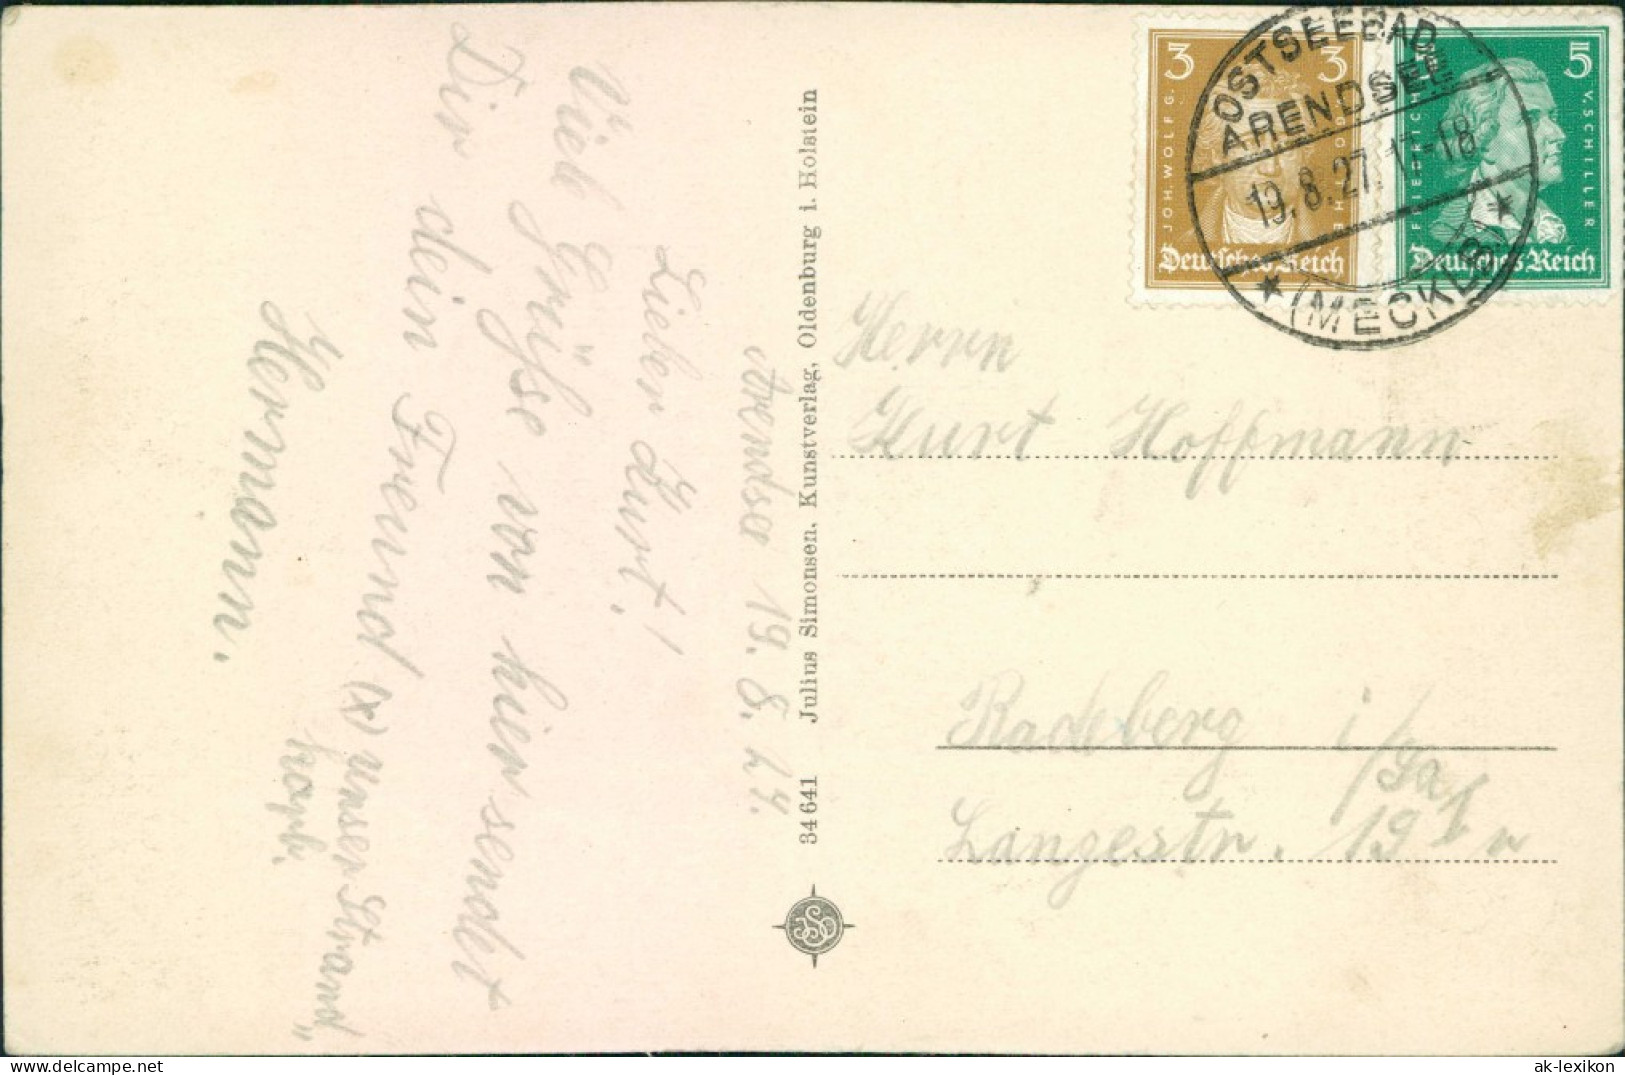 Arendsee 19. 8. 27.
Lieber Kurt!
Viele Grüße von hier sendet
Dir dein Freund (x) unser Strand
Hermann.
34641 Julius Simonsen, Kunstverlag, Oldenburg i. Holstein
3 3
JOH. WOLFG. V. GOETHE
Deutsches Reich
5
FRIEDRICH V. SCHILLER
Deutsches Reich
OSTSEEBAD
ARENDSEE
19.8.27. 17-18
(MECKLB)
Herrn
Kurt Hoffmann
Radeberg i/Sa
Langestr. 19
ak-lexikon